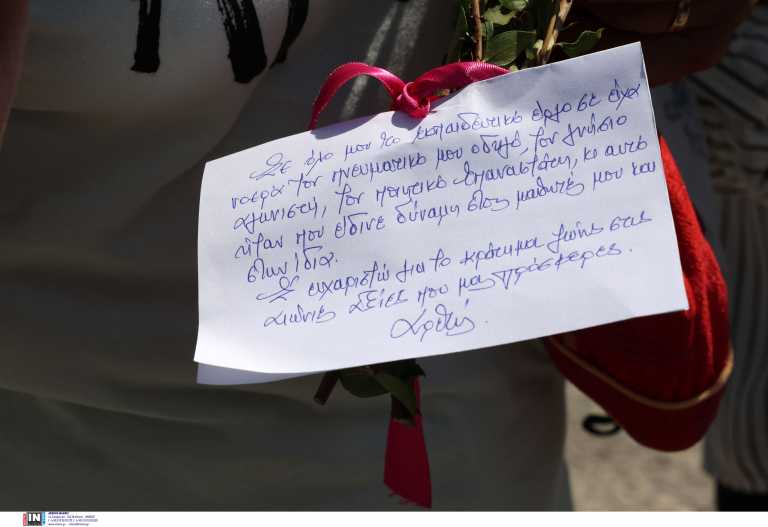 Σε όλο μου το εκπαιδευτικό έργο σε είχα
νοερά τον πνευματικό μου οδηγό, τον γνήσιο
αγωνιστή, τον ποιητικό επαναστάτη, κι αυτό
ήταν που έδινε δύναμη στους μαθητές μου και
στην ίδια.
Σε ευχαριστώ για το κράτημα ζωής στις
αιώνιες αξίες που μας πρόσφερες.
Αρετή.
IN